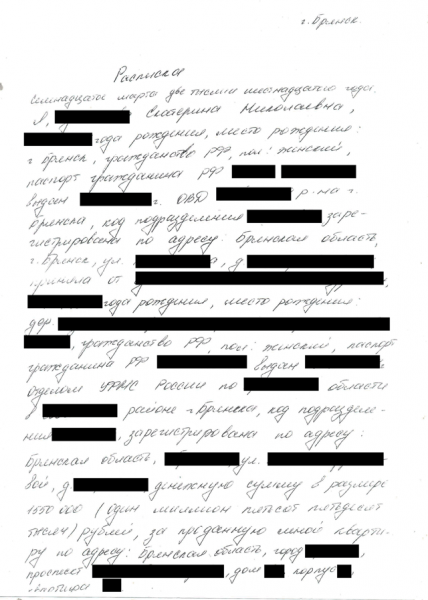 г. Брянск.
Расписка
Семнадцатое марта две тысячи шестнадцатого года.
Я, Екатерина Николаевна,
года рождения, место рождения:
г. Брянск, гражданство РФ, пол: женский,
паспорт гражданина РФ
выдан г. ОВД р-на г.
Брянска, код подразделения заре-
гистрирована по адресу: Брянская область,
г. Брянск, ул. д
приняла от
года рождения, место рождения:
дер.
, гражданство РФ, пол: женский, паспорт
гражданина РФ выдан
отделом УФМС России по области
в районе г. Брянска, код подразделе-
ния , зарегистрирована по адресу:
Брянская область, ул.
вой, д денежную сумму в размере
1550 000 (один миллион пятьсот пятьдесят
тысяч) рублей, за проданную мной кварти-
ру по адресу: Брянская область, город ,
проспект , дом корпус ,
квартира